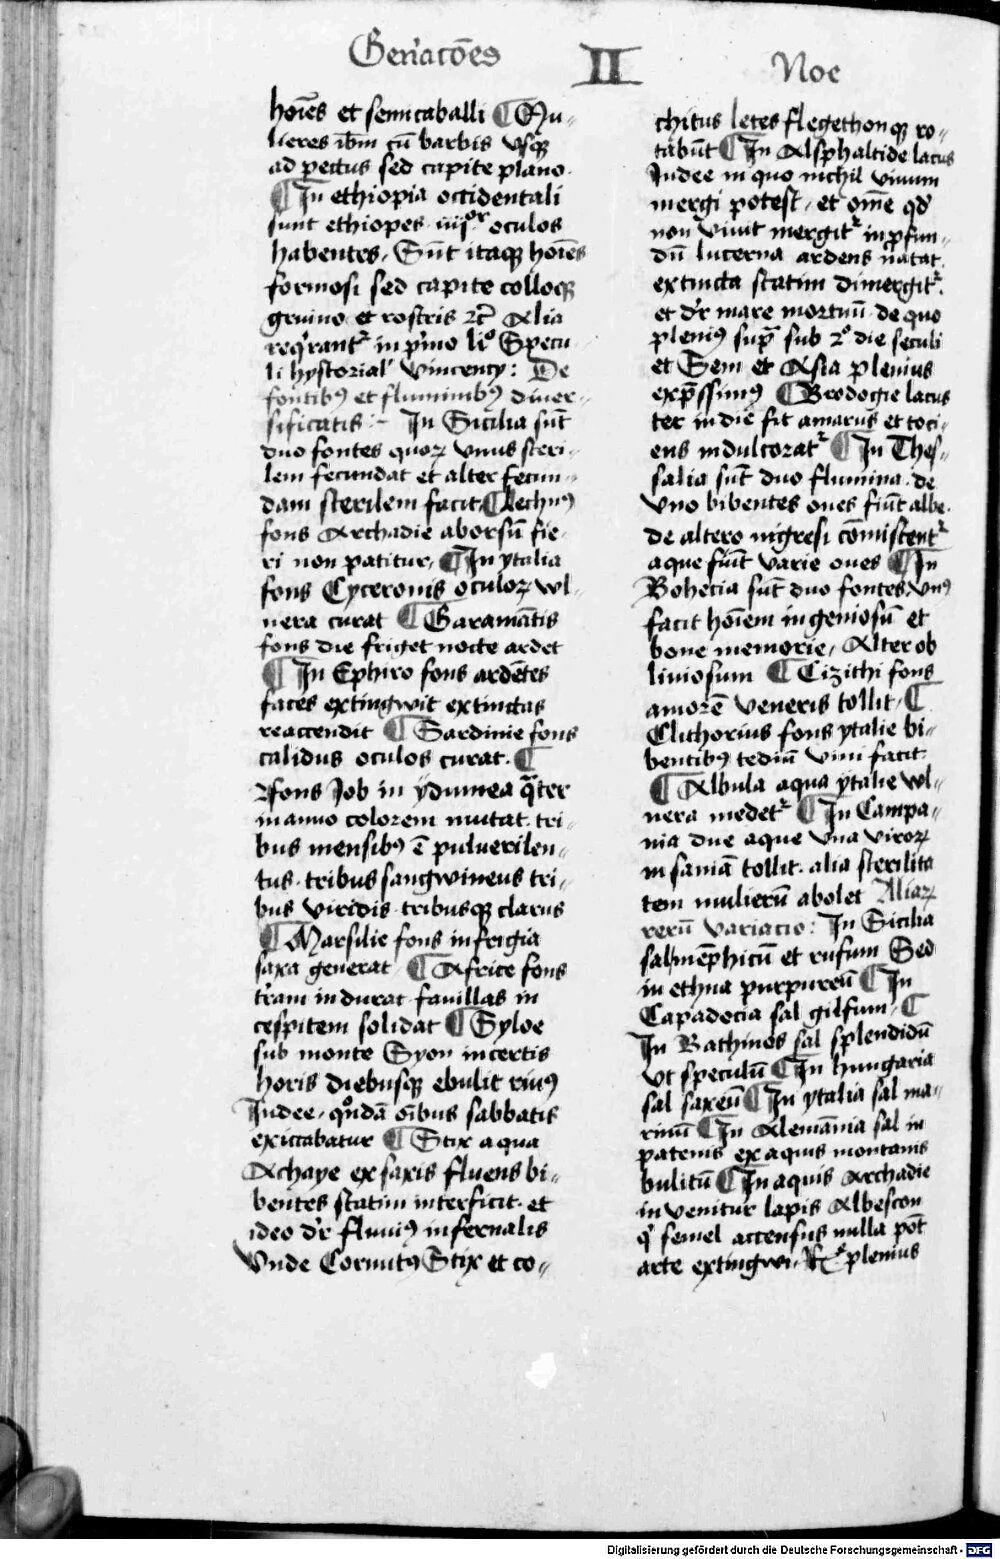 Gen'acōes
II
Noe
hoīes et semicaballi ¶ Mu-
lieres ibm cū barbis vsqꝫ
ad pectus sed capite plano.
¶ In ethiopia occidentali
sunt ethiopes iiij^or oculos
habentes, Sūt itaqꝫ hoīes
formosi sed capite colloqꝫ
gruino et rostris ⁊c̄ Alia
req'rant^r in p'mo li° Specu
li hystorial' vincenty: De
fontibꝰ et fluminibꝰ diuer-
sificatis :- In Sicilia sūt
duo fontes quoꝝ vnus steri-
lem fecundat et alter fecun-
dam sterilem facit, ¶ lechnꝰ
fons Archadie aborsū fie-
ri non patitur, ¶ In ytalia
fons Cyceronis oculoꝝ wl-
nera curat ¶ Garamātis
fons die friget nocte ardet
¶ In Ephiro fons ardētes
faces extingwit extinctas
reaccendit ¶ Sardinie fons
calidus oculos curat. ¶
fons Job in ydumea q̄ter
in anno colorem mutat. tri-
bus mensibꝰ ē puluerilen-
tus. tribus sangwineus tri-
bus viridis tribusqꝫ clarus
¶ Marsilie fons in frigia
saxa generat ¶ Africe fons
t'ram indurat fauillas in
cespitem solidat ¶ Syloe
sub monte Syon incertis
horis diebusqꝫ ebulit riuꝰ
Iudee, q°ndā oībus sabbatis
exiccabatur ¶ Stix aqua
Achaye ex saxis fluens bi-
bentes statim interficit. et
ideo d'r fluuiꝰ infernalis
Vnde Cornutꝰ Stix et co-
chitus letes flegethonqꝫ ro-
tabūt ¶ In Asphaltide lacus
Iudee in quo nichil viuum
mergi potest, et om̄e qd'
non viuit mergit^r in p̱fun-
dū lucerna ardens natat.
extincta statim dimergit^r.
et d'r mare mortuū. de quo
pleniꝰ sup̄ sub 2° die seculi
et Sem et Asia plenius
exp̄ssimꝰ ¶ Trodogie lacus
ter in die fit amarus et toci-
ens indulcorat^r ¶ In Thes-
salia sūt duo flumina. de
vno bibentes oues fiūt albe.
de altero nigresi cōmiscent^r
aque fiūt varie oues ¶ In
Bohecia sūt duo fontes, vnꝰ
facit hoīem ingeniosū et
bone memorie, Alter ob
liuiosum ¶ Cizithi fons
amorē veneris tollit, ¶
Clithorius fons ytalie bi-
bentibꝰ tediū vini facit.
¶ Albula aqua ytalie wl-
nera medet^r ¶ In Campa-
nia due aque vna viroꝝ
insaniā tollit. alia sterilita
tem mulierū abolet Aliaꝝ
rerū variacio: In Sicilia
sal mēphicū et rufum Sed
in ethna purpureū ¶ In
Capadocia sal gilfum, ¶
In Bathinos sal splendidū
vt speculū ¶ In hungaria
sal saxeū ¶ In ytalia sal ma-
rinū ¶ In Alemānia sal in
patenis ex aquis montanis
bulitū ¶ In aquis Archadie
inuenitur lapis Albescon
q' semel accensus nulla pōt
arte extingwi, plenius
Digitalisierung gefördert durch die Deutsche Forschungsgemeinschaft - DFG